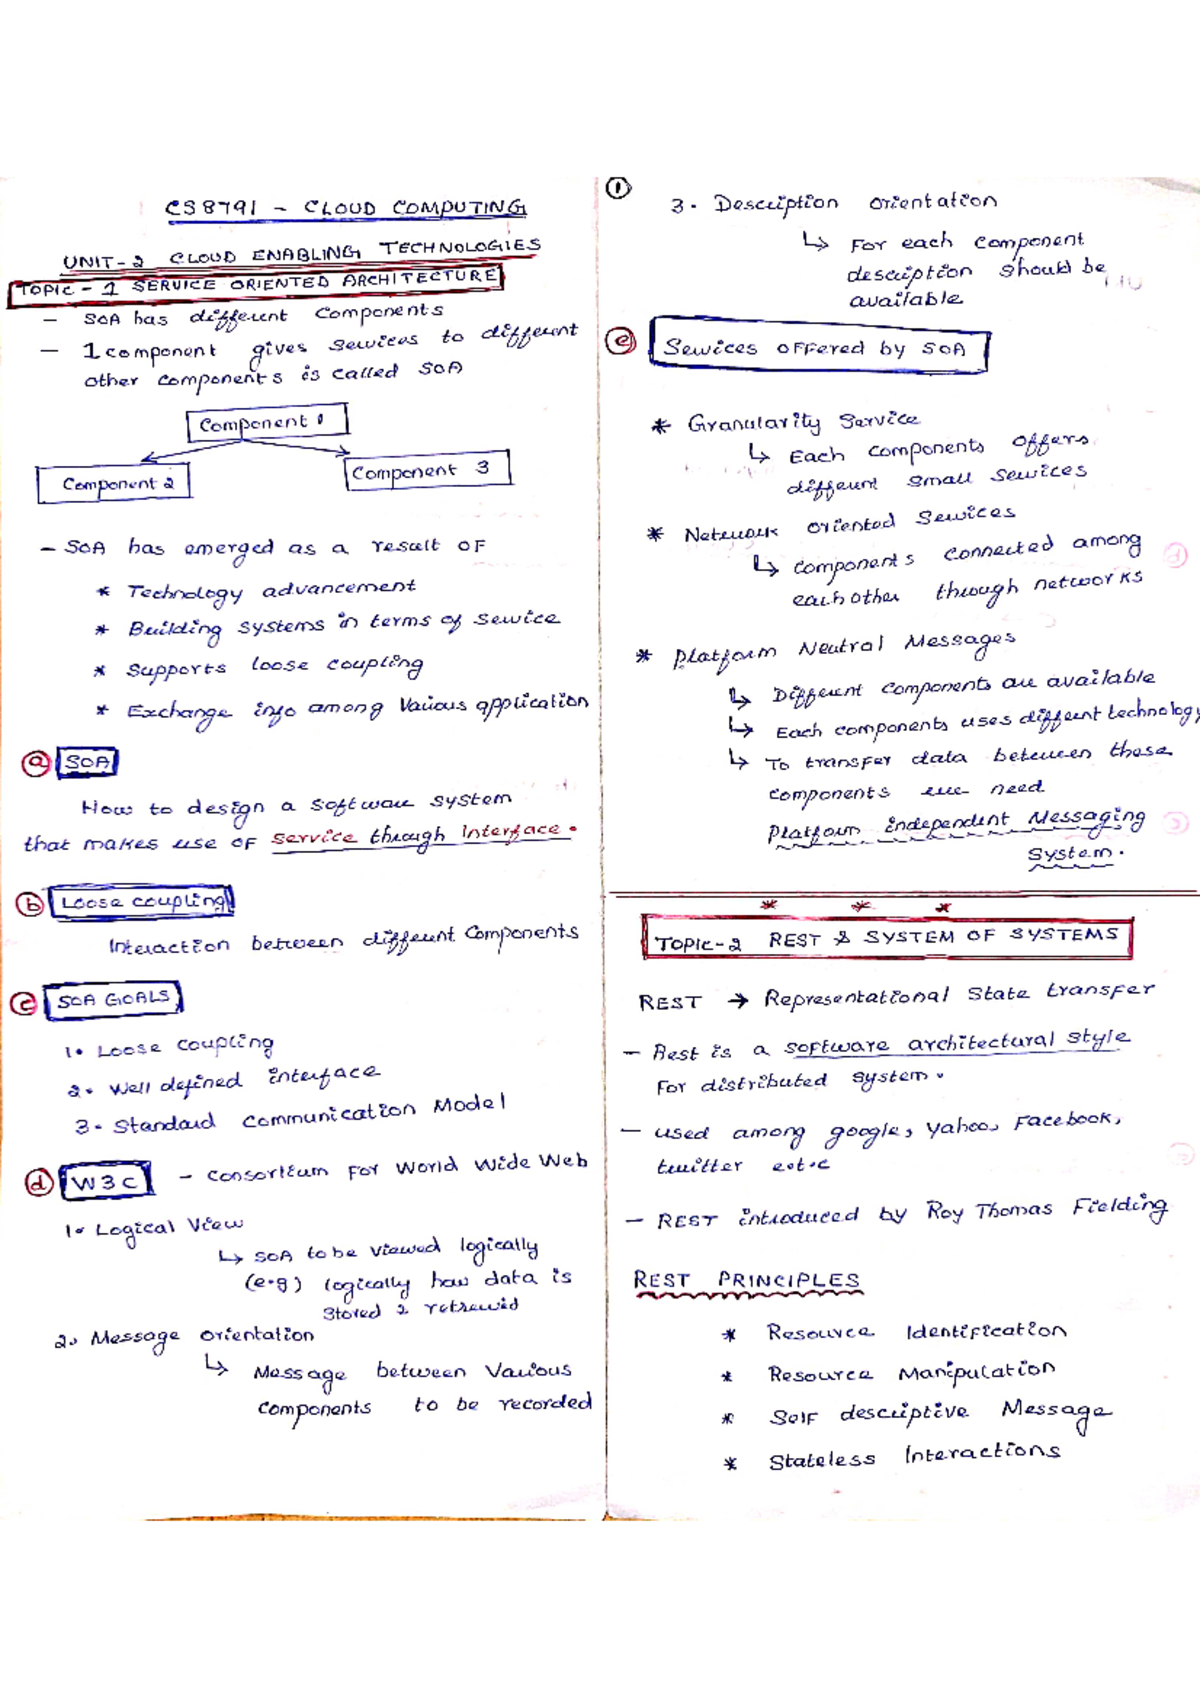 CS8791 - CLOUD COMPUTING
UNIT-2 CLOUD ENABLING TECHNOLOGIES
TOPIC - 1 SERVICE ORIENTED ARCHITECTURE
- SOA has different components
- 1 component gives services to different
other components is called SOA
Component 1
Component 2
Component 3
- SOA has emerged as a result of
* Technology advancement
* Building systems in terms of service
* Supports loose coupling
* Exchange info among various application
a SOA
How to design a software system
that makes use of service through Interface.
b Loose coupling
Interaction between different Components
c SOA GOALS
1. Loose coupling
2. Well defined interface
3. Standard communication Model
d W3C - consortium for World Wide Web
1. Logical View
↳ SOA to be viewed logically
(e.g) logically how data is
stored & retrewed
2. Message orientation
↳ Message between various
components to be recorded
1
3. Description orientation
↳ For each component
description should be
available
e Services offered by SOA
* Granularity Service
↳ Each components offers
different small services
* Network oriented Services
↳ components connected among
each other through networks
* Platform Neutral Messages
↳ Different components are available
↳ Each components uses different technology
↳ To transfer data between these
components we need
Platform independent Messaging
System.
* * *
TOPIC-2 REST & SYSTEM OF SYSTEMS
REST → Representational State transfer
- Rest is a software architectural style
for distributed system.
- used among google, yahoo, Facebook,
twitter e.t.c
- REST introduced by Roy Thomas Fielding
REST PRINCIPLES
* Resource Identification
* Resource Manipulation
* Self descriptive Message
* Stateless Interactions